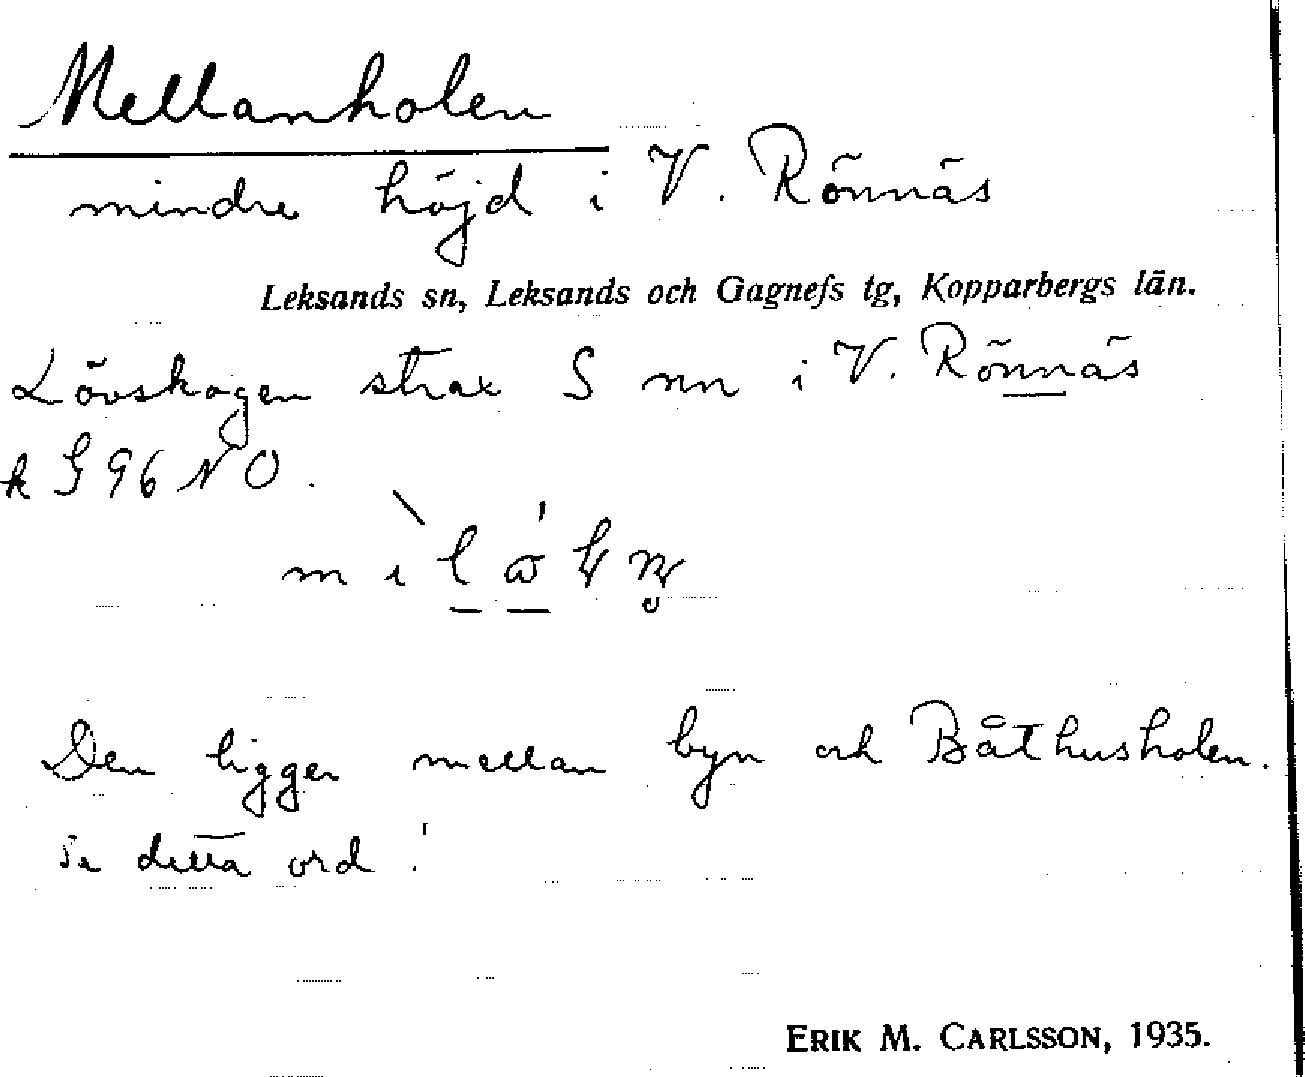 Mellanholen
mindre höjd i V. Rönnäs
Leksands sn, Leksands och Gagnefs tg, Kopparbergs län.
Lövskogen strax S nn i V. Rönnäs
k G 96 NO.
Den ligger mellan byn och Båthusholen.
Se detta ord!
ERIK M. CARLSSON, 1935.